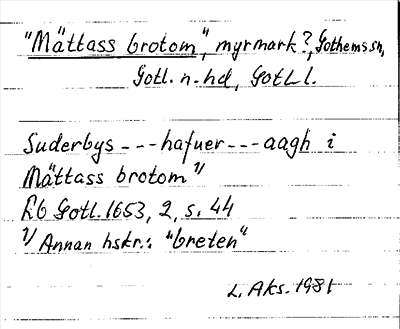 "Mättass brotom", myrmark?, Gothems sn,
Gotl. n. hd, Gotl l.
Suderbys --- hafuer --- aagh i
Mättass brotom 1/
Rb Gotl. 1653, 2, s. 44
1/ Annan hskr.: "breten"
L. Aks. 1981